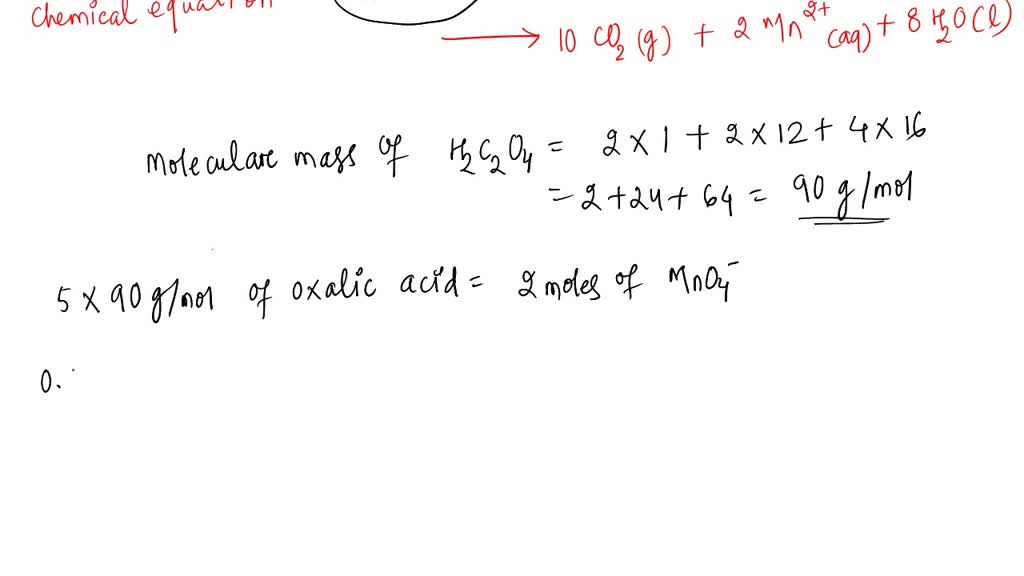 chemical equation
⟶ 10 CO₂ (g) + 2 Mn²⁺ (aq) + 8 H₂O (l)
Moleculare mass of H₂C₂O₄ = 2 × 1 + 2 × 12 + 4 × 16
= 2 + 24 + 64 = 90 g/mol
5 × 90 g/mol of oxalic acid = 2 moles of MnO₄⁻
0.